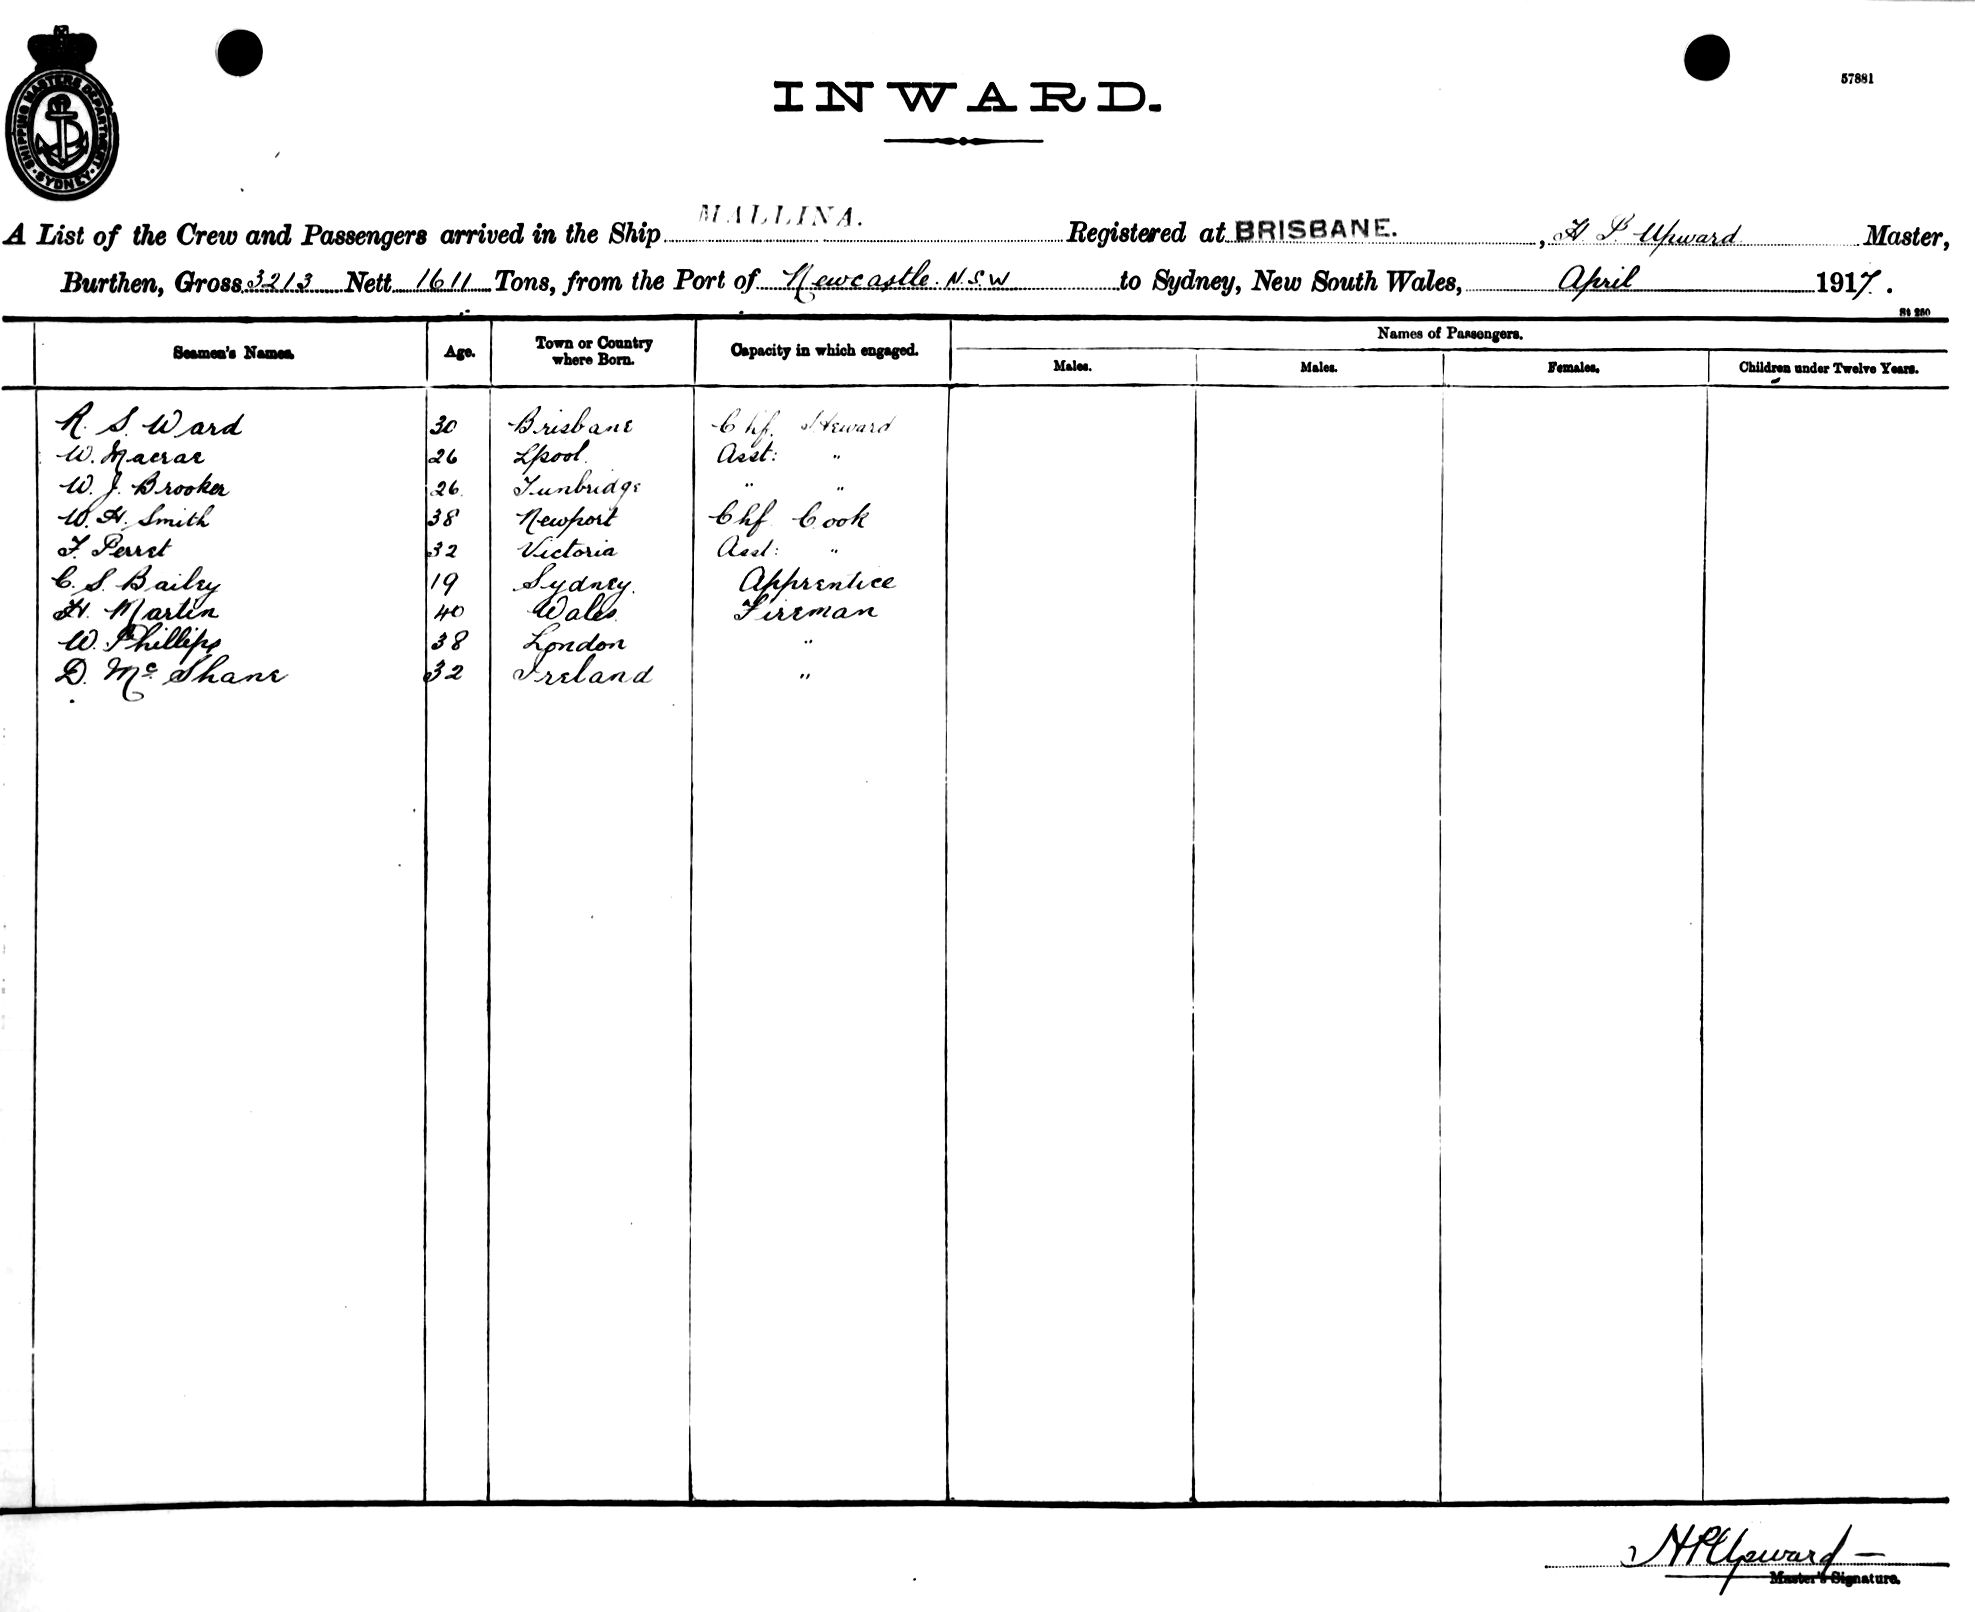 SHIPPING MASTERS DEPARTMENT
· SYDNEY ·
57881
INWARD.
A List of the Crew and Passengers arrived in the Ship MALLINA. Registered at BRISBANE. , H P Upward Master,
Burthen, Gross 3213 Nett 1611 Tons, from the Port of Newcastle. N.S.W to Sydney, New South Wales, April 1917.
St 250
Seamen's Names. Age. Town or Country where Born. Capacity in which engaged. Names of Passengers.
Males. Males. Females. Children under Twelve Years.
R. S. Ward 30 Brisbane Chf. Steward
W. Macrae 26 Lpool. Asst: "
W. J. Brooker 26 Tunbridge " "
W. H. Smith 38 Newport Chf Cook
F. Perret 32 Victoria Asst: "
C. S. Bailey 19 Sydney. Apprentice
H. Martin 40 Wales. Fireman
W. Phillips 38 London "
D. McShane 32 Ireland "
H P Upward
Master's Signature.